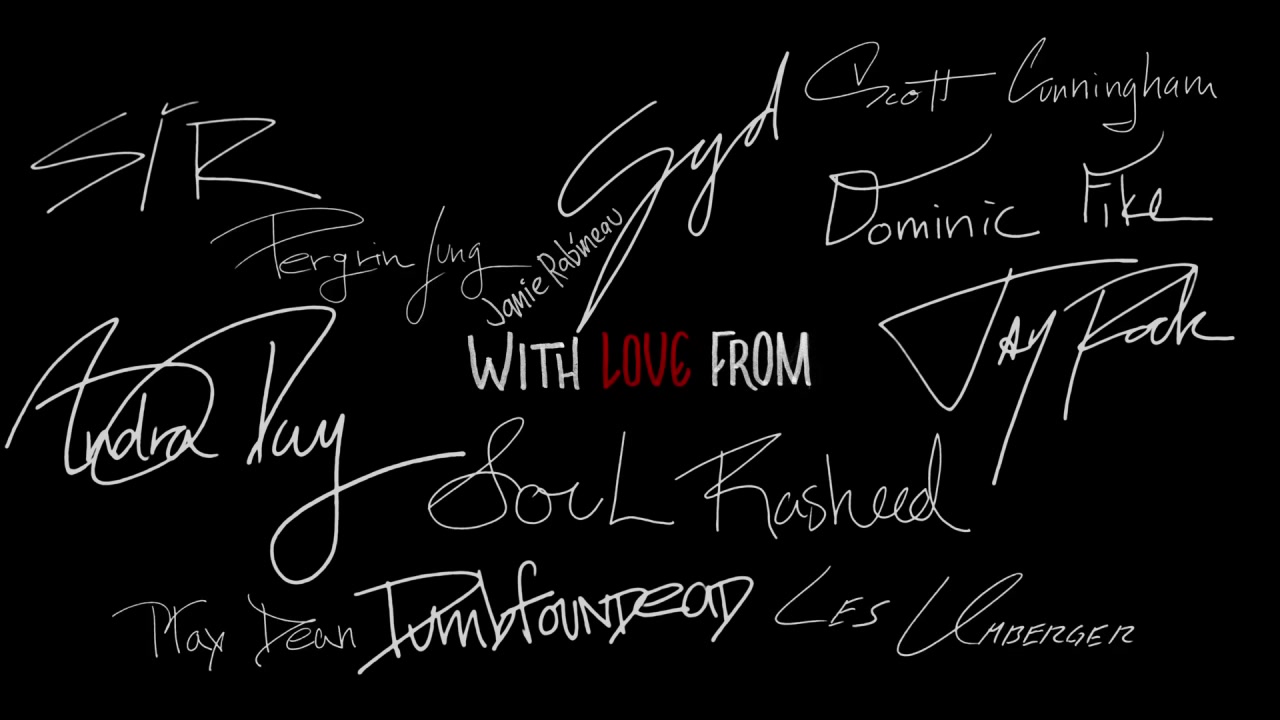 SiR
Gyd
Scott Cunningham
Dominic Fike
Pergrin Jung
Jamie Rabineau
WITH LOVE FROM
Jay Rock
Andra Day
Soul Rasheed
Max Dean
Dumbfoundead
Les Umberger